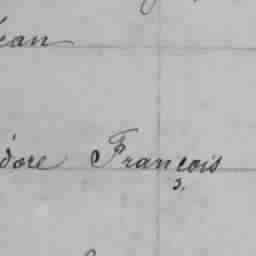 éan
dore François